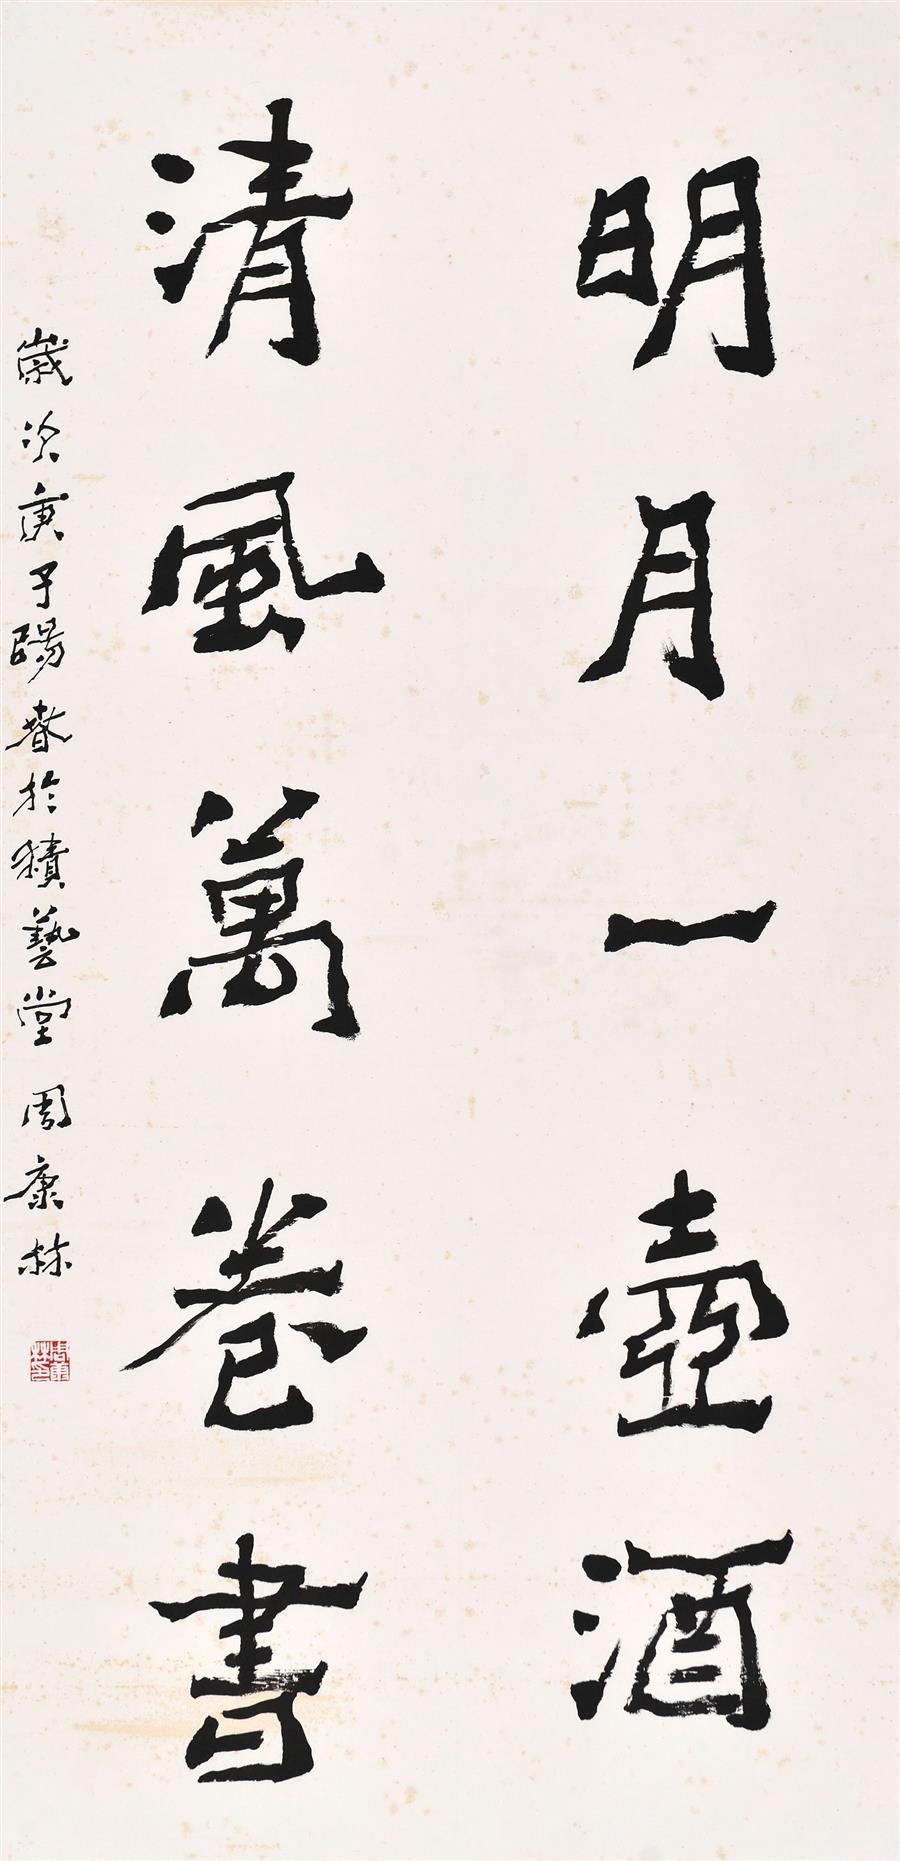 明月一壺酒
清風萬卷書
歲次庚子陽春於積藝堂 周康林